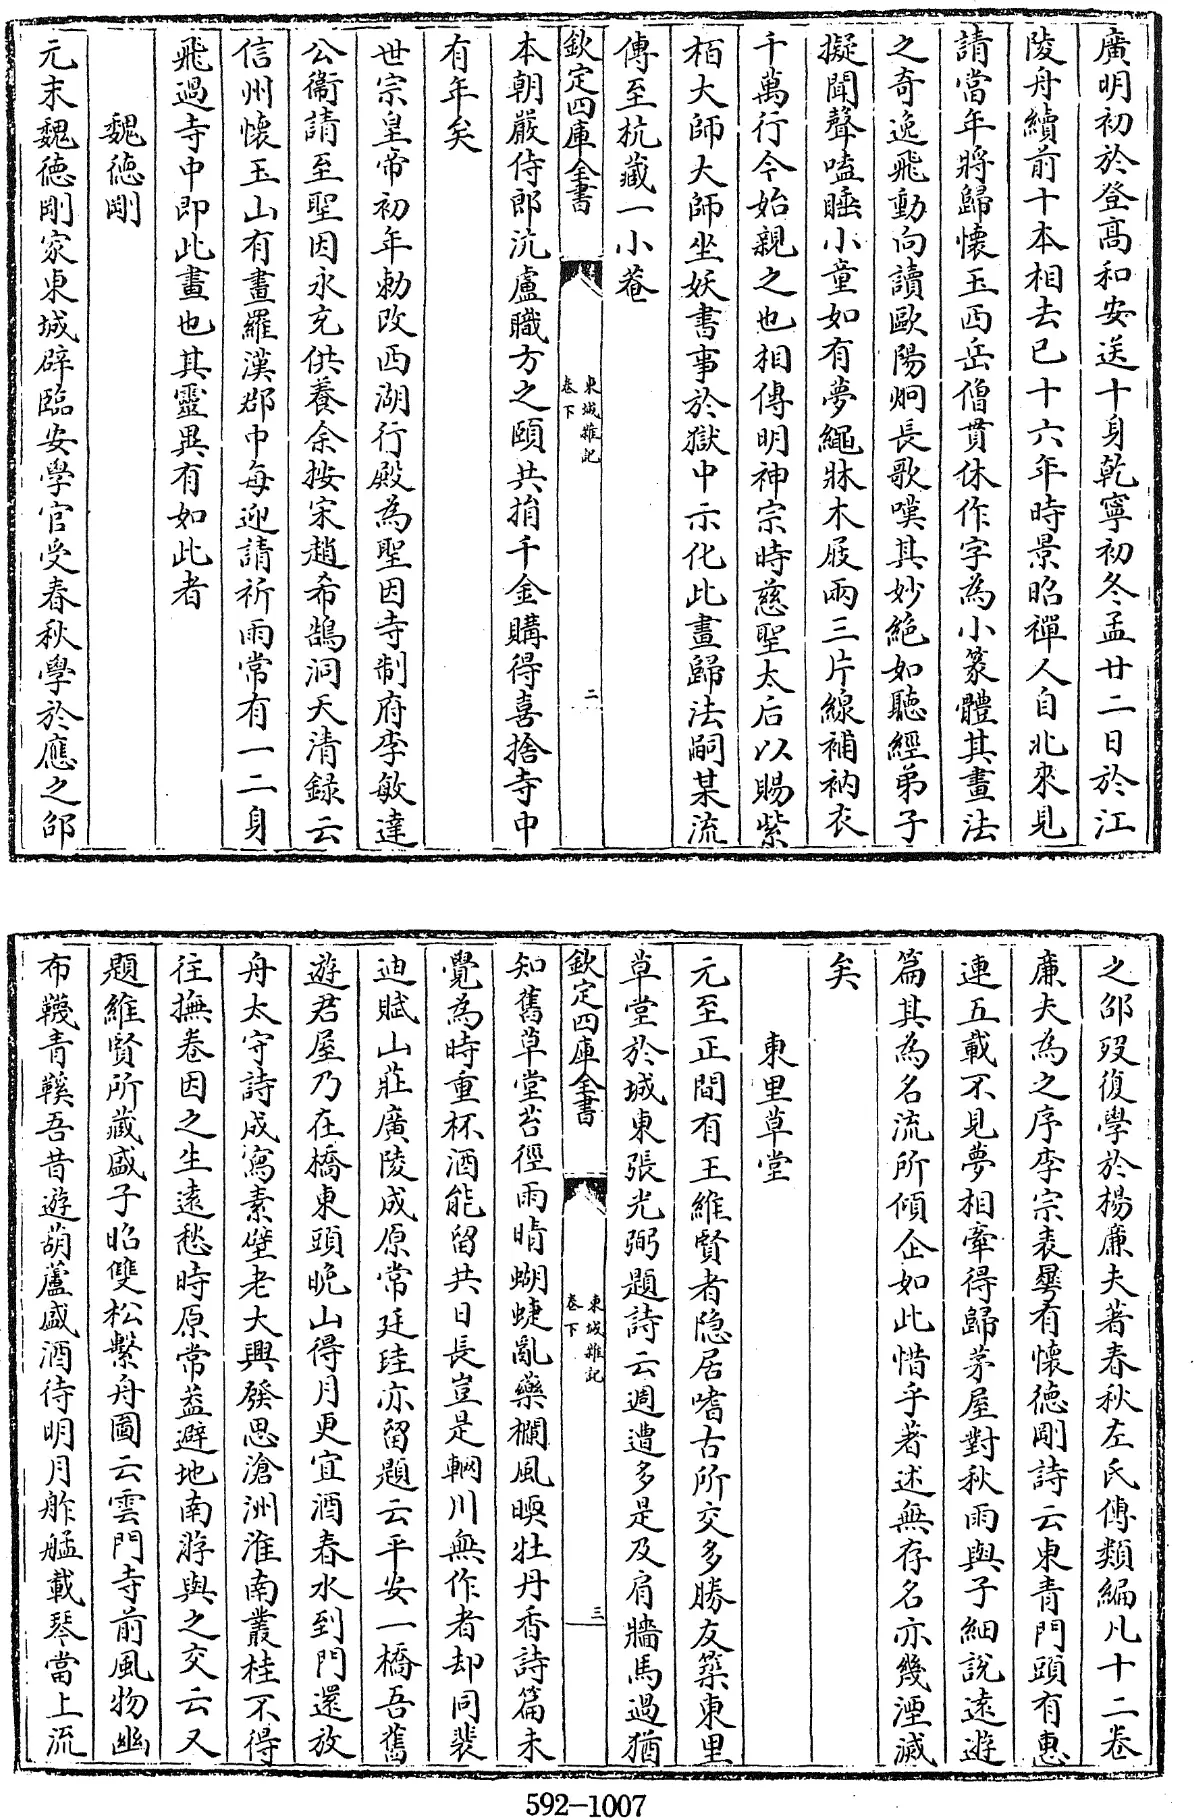 廣明初於登髙和安送十身乾寧初冬孟廿二日於江
陵舟續前十本相去已十六年時景昭禪人自北來見
請當年將歸懷玉西岳僧貫休作字為小篆體其畫法
之奇逸飛動向讀歐陽炯長歌嘆其妙絶如聽經弟子
擬聞聲嗑睡小童如有夢繩牀木屐兩三片線補衲衣
千萬行今始親之也相傳明神宗時慈聖太后以賜紫
栢大師大師坐妖書事於獄中示化此畫歸法嗣某流
傳至杭藏一小菴
欽定四庫全書
東城雜記
卷下
二
本朝嚴侍郎沆盧職方之頤共捐千金購得喜捨寺中
有年矣
世宗皇帝初年勅改西湖行殿為聖因寺制府李敏達
公衞請至聖因永充供養余按宋趙希鵠洞天清録云
信州懷玉山有畫羅漢郡中每迎請祈雨常有一二身
飛過寺中即此畫也其靈異有如此者
魏德剛
元末魏德剛家東城辟臨安學官受春秋學於應之邵
之邵歿復學於楊廉夫著春秋左氏傳類編凡十二卷
廉夫為之序李宗表曅有懷德剛詩云東青門頭有惠
連五載不見夢相牽得歸茅屋對秋雨與子細說遠遊
篇其為名流所傾企如此惜乎著述無存名亦幾湮滅
矣
東里草堂
元至正間有王維賢者隐居嗜古所交多勝友築東里
草堂於城東張光弼題詩云週遭多是及肩牆馬過猶
欽定四庫全書
東城雜記
卷下
三
知舊草堂苔徑雨晴蝴蜨亂藥欄風暎牡丹香詩篇未
覺為時重杯酒能留共日長豈是輞川無作者却同裴
迪賦山莊廣陵成原常廷珪亦留題云平安一橋吾舊
遊君屋乃在橋東頭晚山得月更宜酒春水到門還放
舟太守詩成寫素壁老大興發思滄洲淮南叢桂不得
往撫卷因之生遠愁時原常益避地南游與之交云又
題維賢所藏盛子昭雙松繫舟圖云雲門寺前風物幽
布韈青鞵吾昔遊葫蘆盛酒待明月舴艋載琴當上流
592-1007